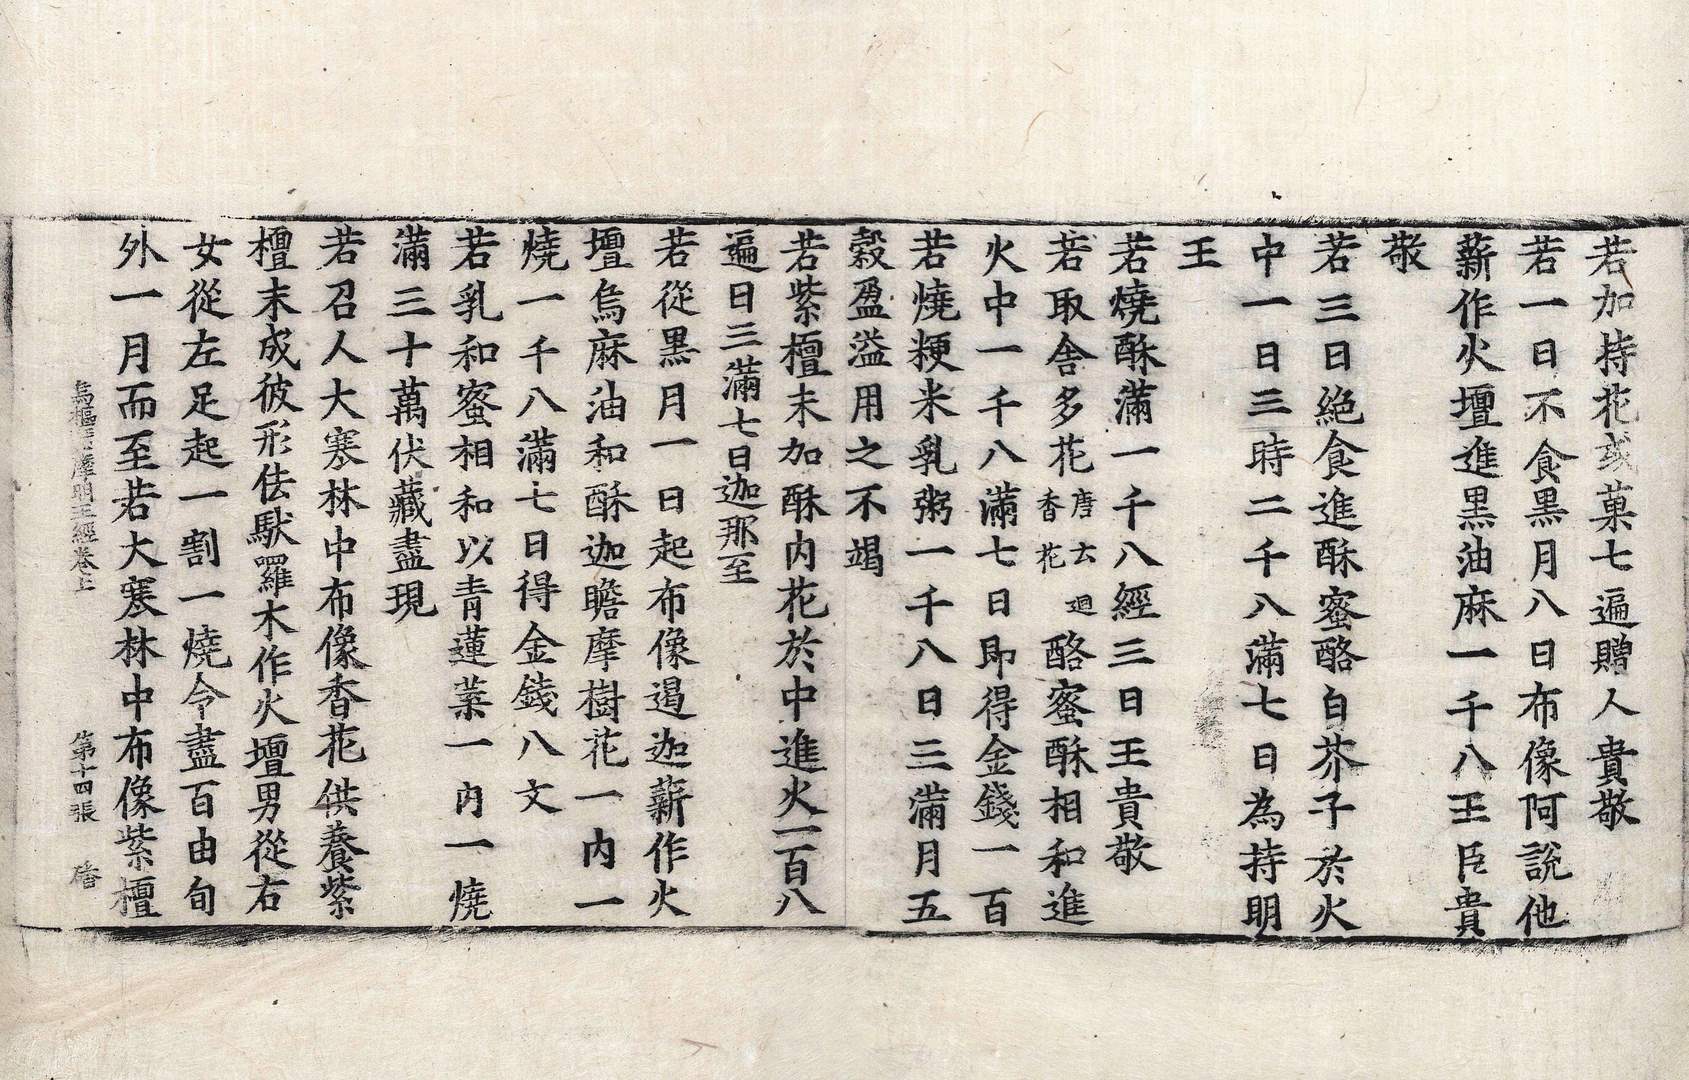 若加持花或菓七遍贈人貴敬
若一日不食黑月八日布像阿說他
薪作火壇進黑油麻一千八王臣貴
敬
若三日絶食進酥蜜酪白芥子於火
中一日三時二千八滿七日為持明
王
若燒酥滿一千八經三日王貴敬
若取舍多花唐云迴香花酪蜜酥相和進
火中一千八滿七日即得金錢一百
若燒粳米乳粥一千八日三滿月五
穀盈溢用之不竭
若紫檀末加酥内花於中進火一百八
遍日三滿七日迦那至
若從黑月一日起布像遏迦薪作火
壇烏麻油和酥迦瞻摩樹花一内一
燒一千八滿七日得金錢八文
若乳和蜜相和以青蓮葉一内一燒
滿三十萬伏藏盡現
若召人大寒林中布像香花供養紫
檀末成彼形佉馱羅木作火壇男從右
女從左足起一割一燒令盡百由旬
外一月而至若大寒林中布像紫檀
烏樞 摩明王經卷上 第十四張